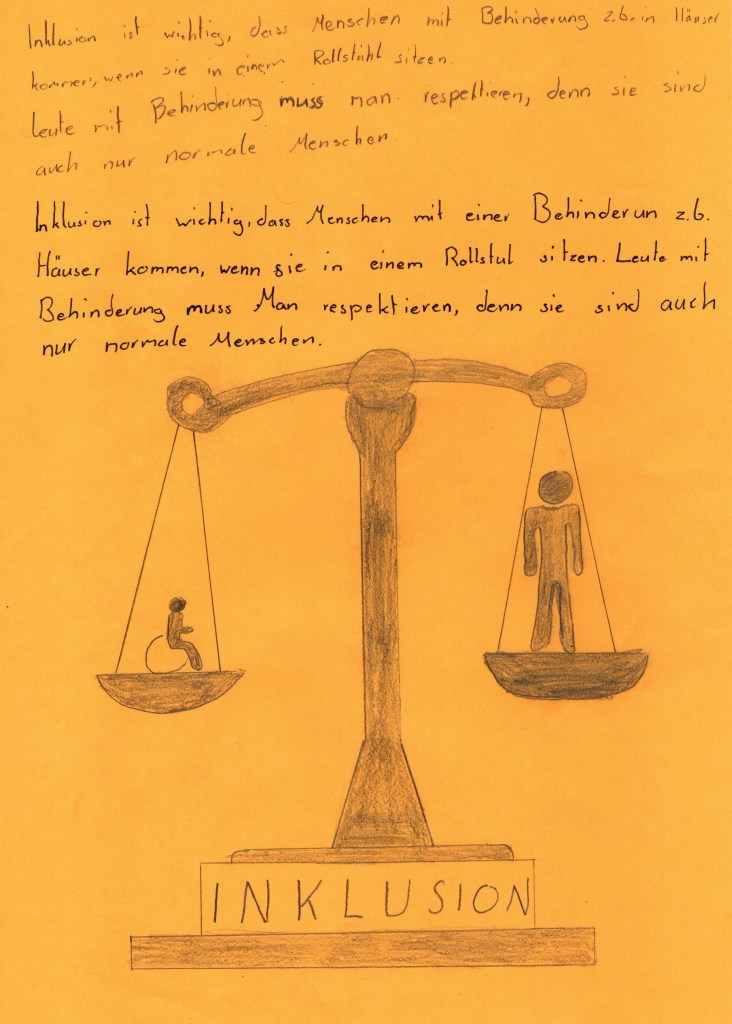 Inklusion ist wichtig, dass Menschen mit Behinderung z.b. in Häuser
kommen, wenn sie in einem Rollstuhl sitzen.
Leute mit Behinderung muss man respektieren, denn sie sind
auch nur normale Menschen.
Inklusion ist wichtig, dass Menschen mit einer Behinderun z.b.
Häuser kommen, wenn sie in einem Rollstul sitzen. Leute mit
Behinderung muss Man respektieren, denn sie sind auch
nur normale Menschen.
INKLUSION